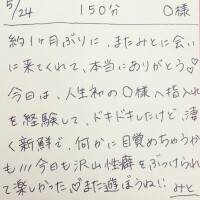 5/24 150分 O様
約1ヶ月ぶりに、またみとに会い
に来てくれて、本当にありがとう♡
今日は、人生初のO様へ指入れ
を経験して、ドキドキしたけど、凄
く新鮮で、何かに目覚めちゃうか
も///今日も沢山性癖をぶつけられ
て楽しかった♡また遊ぼうね!! みと